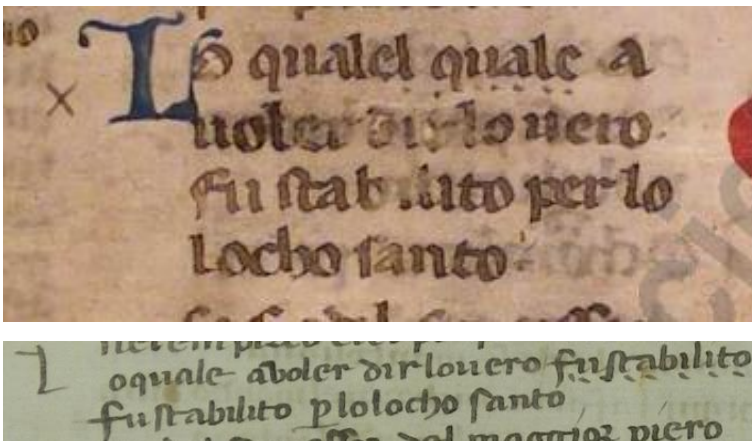 Lo qualel quale a
uoler dir lo uero.
Fu stabilito per lo
Locho santo
L
oquale auoler dirlouero fustabilito
fustabilito plolocho santo
dal maggior piero